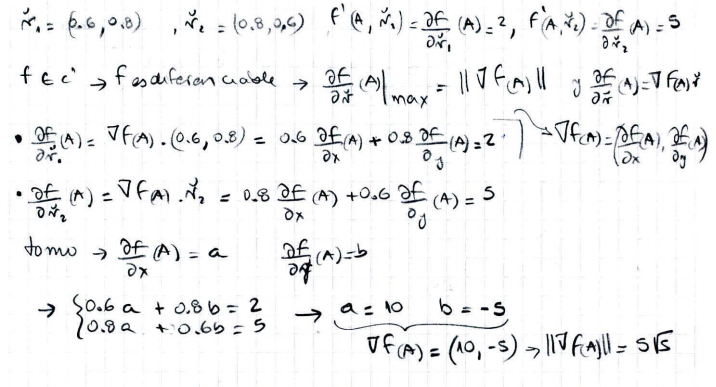 ř₁ = (0.6, 0.8) , ř₂ = (0.8, 0,6) f'(A, ř₁) = ∂f/∂ř₁ (A) = 2, f'(A, ř₂) = ∂f/∂ř₂ (A) = 5
f ∈ C' → f es diferenciable → ∂f/∂ř (A)|max = ||∇f(A)|| y ∂f/∂ř (A) = ∇f(A) ř
• ∂f/∂ř₁ (A) = ∇f(A) . (0.6, 0.8) = 0.6 ∂f/∂x (A) + 0.8 ∂f/∂y (A) = 2 → ∇f(A) = (∂f/∂x (A), ∂f/∂y (A))
• ∂f/∂ř₂ (A) = ∇f(A) . ř₂ = 0.8 ∂f/∂x (A) + 0.6 ∂f/∂y (A) = 5
tomo → ∂f/∂x (A) = a ∂f/∂y (A) = b
→ { 0.6 a + 0.8 b = 2 → a = 10 b = -5
0.8 a + 0.6 b = 5
∇f(A) = (10, -5) → ||∇f(A)|| = 5√5